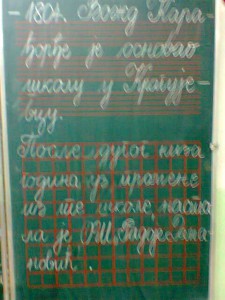 – 1804. Вожд Кара-
ђорђе је основао
школу у Крагује-
вцу.
После дугог низа
година уз промене
из те школе наста
ла је Дома-
новић.